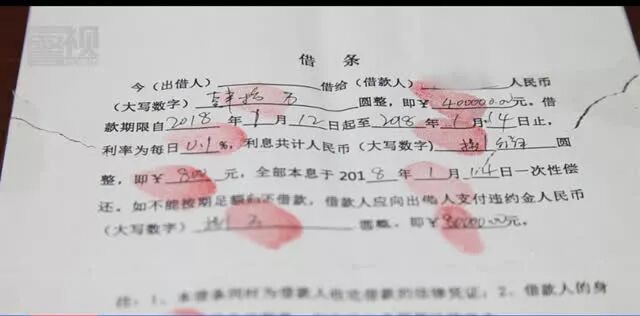 警视
借 条
今（出借人）借给（借款人）人民币
（大写数字）圆整，即￥400000.00元。借
款期限自2018年1月12日起至2018年1月14日止，
利率为每日0.1%，利息共计人民币（大写数字）圆
整，即￥800元，全部本息于2018年1月14日一次性偿
还。如不能按期足额归还借款，借款人应向出借人支付违约金人民币
（大写数字）圆整，即￥80000.00元。
注：1、本借条同样为借款人收讫借款的法律凭证；2、借款人的身